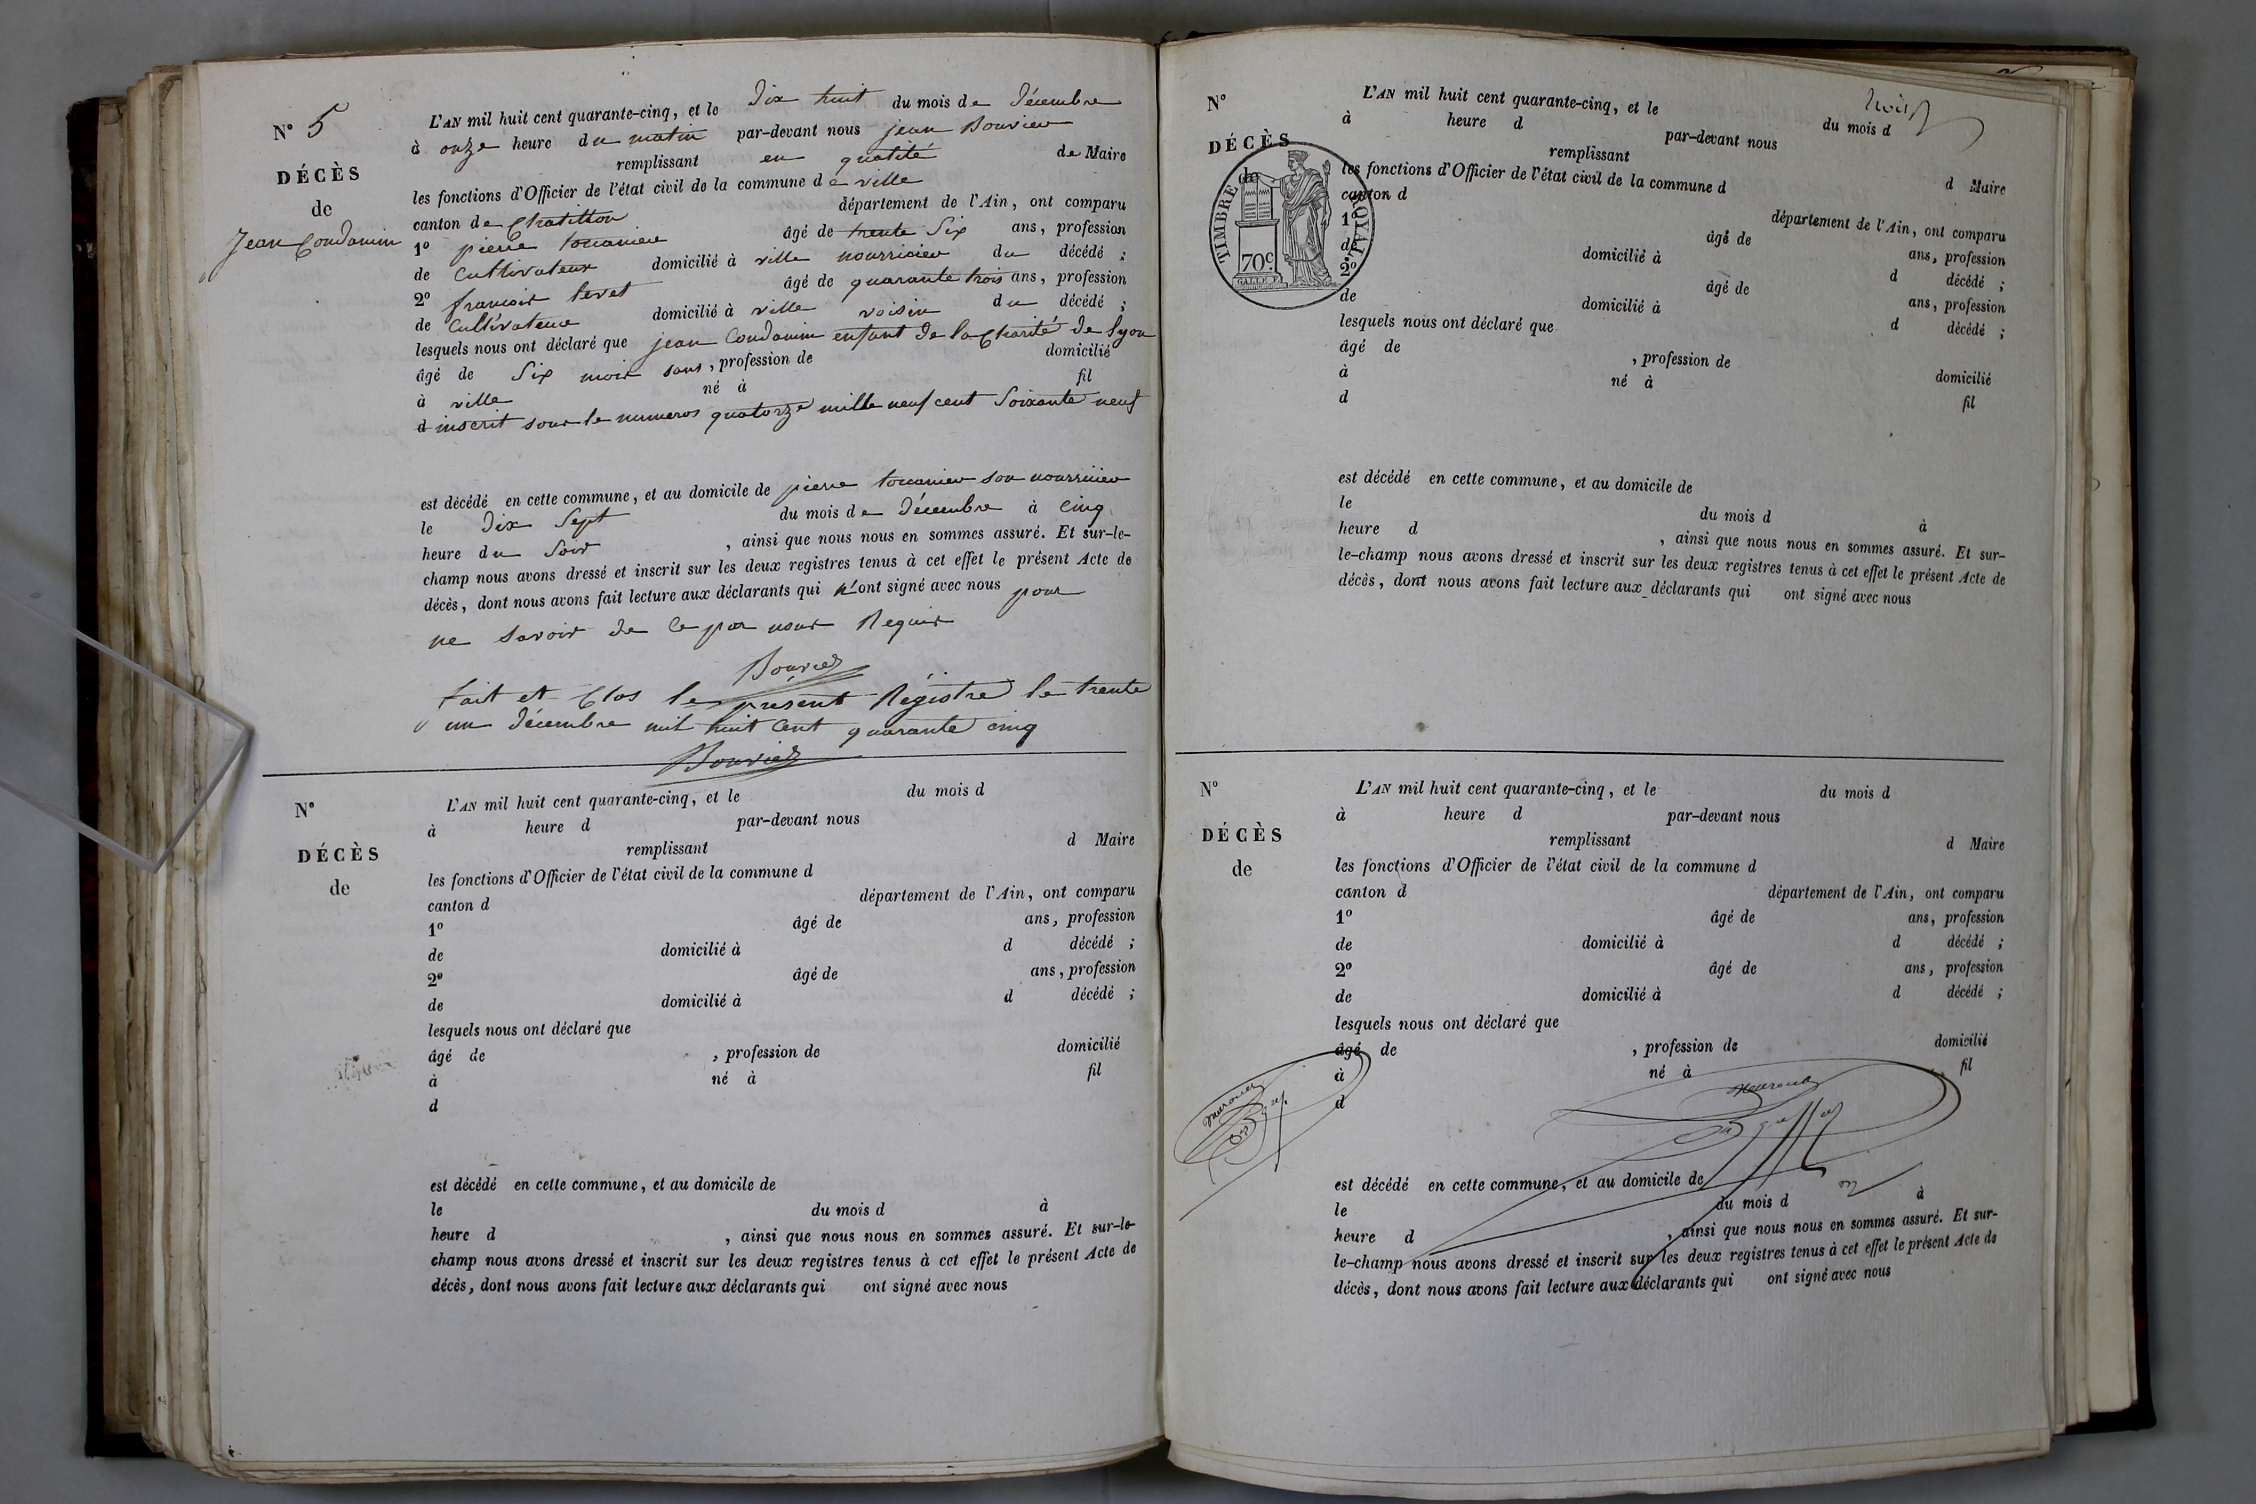 N° 5
DÉCÈS
de
Jean Condamin
L'AN mil huit cent quarante-cinq, et le dix huit du mois de décembre
à onze heure du matin par-devant nous jean Bouvier
remplissant en qualité de Maire
les fonctions d'Officier de l'état civil de la commune de ville
canton de Chatillon département de l'Ain, ont comparu
1° pierre âgé de trente six ans, profession
de Cultivateur domicilié à ville nourricier du décédé ;
2° francois levet âgé de quarante trois ans, profession
de Cultivateur domicilié à ville voisin du décédé ;
lesquels nous ont déclaré que jean Condamin enfant de la Charité de lyon
âgé de six mois sans, profession de domicilié
à ville né à fil
d inscrit sous le numeros quatorze mille neuf cent soixante neuf
est décédé en cette commune, et au domicile de pierre son nourricier
le dix sept du mois de décembre à cinq
heure du soir , ainsi que nous nous en sommes assuré. Et sur-le-
champ nous avons dressé et inscrit sur les deux registres tenus à cet effet le présent Acte de
décès, dont nous avons fait lecture aux déclarants qui n'ont signé avec nous pour
ne savoir de ce par nous Requis
Bouvier
fait et Clos le présent Régistre le trente
un décembre mil huit cent quarante cinq
Bouvier
N°
DÉCÈS
de
L'AN mil huit cent quarante-cinq, et le du mois d
à heure d par-devant nous
remplissant d Maire
les fonctions d'Officier de l'état civil de la commune d
canton d département de l'Ain, ont comparu
1° âgé de ans, profession
de domicilié à d décédé ;
2° âgé de ans, profession
de domicilié à d décédé ;
lesquels nous ont déclaré que
âgé de , profession de domicilié
à né à fil
d
est décédé en cette commune, et au domicile de
le du mois d à
heure d , ainsi que nous nous en sommes assuré. Et sur-le-
champ nous avons dressé et inscrit sur les deux registres tenus à cet effet le présent Acte de
décès, dont nous avons fait lecture aux déclarants qui ont signé avec nous
N°
DÉCÈS
de
TIMBRE ROYAL
70c
L'AN mil huit cent quarante-cinq, et le du mois d
à heure d par-devant nous
remplissant d Maire
les fonctions d'Officier de l'état civil de la commune d
canton d département de l'Ain, ont comparu
1° âgé de ans, profession
de domicilié à d décédé ;
2° âgé de ans, profession
de domicilié à d décédé ;
lesquels nous ont déclaré que
âgé de , profession de domicilié
à né à fil
d
est décédé en cette commune, et au domicile de
le du mois d à
heure d , ainsi que nous nous en sommes assuré. Et sur-
le-champ nous avons dressé et inscrit sur les deux registres tenus à cet effet le présent Acte de
décès, dont nous avons fait lecture aux déclarants qui ont signé avec nous
N°
DÉCÈS
de
L'AN mil huit cent quarante-cinq, et le du mois d
à heure d par-devant nous
remplissant d Maire
les fonctions d'Officier de l'état civil de la commune d
canton d département de l'Ain, ont comparu
1° âgé de ans, profession
de domicilié à d décédé ;
2° âgé de ans, profession
de domicilié à d décédé ;
lesquels nous ont déclaré que
âgé de , profession de domicilié
à né à fil
d
est décédé en cette commune, et au domicile de
le du mois d à
heure d , ainsi que nous nous en sommes assuré. Et sur-
le-champ nous avons dressé et inscrit sur les deux registres tenus à cet effet le présent Acte de
décès, dont nous avons fait lecture aux déclarants qui ont signé avec nous